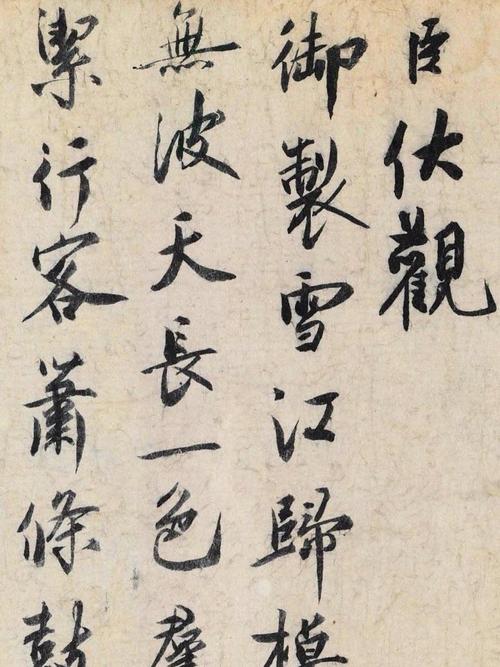 臣伏觀
御製雪江歸棹
無波天長一色群
潔行客蕭條鼓